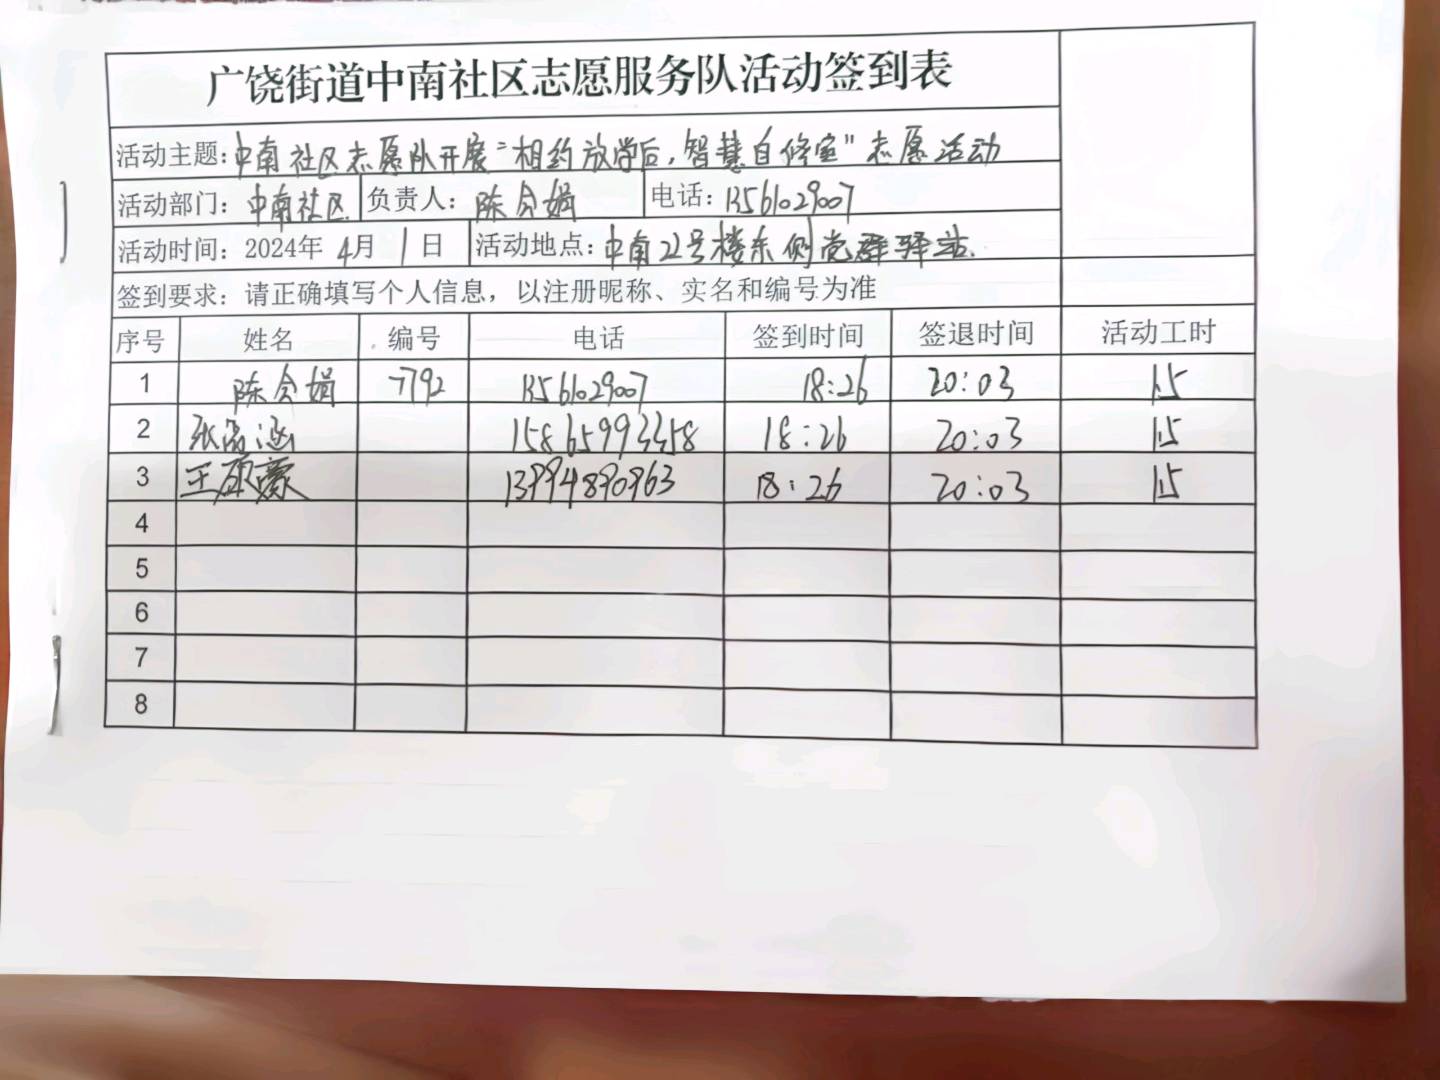 广饶街道中南社区志愿服务队活动签到表
活动主题：中南社区志愿队开展“相约放学后，智慧自修室”志愿活动
活动部门：中南社区 负责人：陈会娟 电话：13561029007
活动时间：2024年 4月 1日 活动地点：中南22号楼东侧党群驿站.
签到要求：请正确填写个人信息，以注册昵称、实名和编号为准
序号 姓名 编号 电话 签到时间 签退时间 活动工时
1 陈会娟 7792 13561029007 18:26 20:03 1.5
2 张 涵 15865993358 18:26 20:03 1.5
3 王 18:26 20:03 1.5
4
5
6
7
8